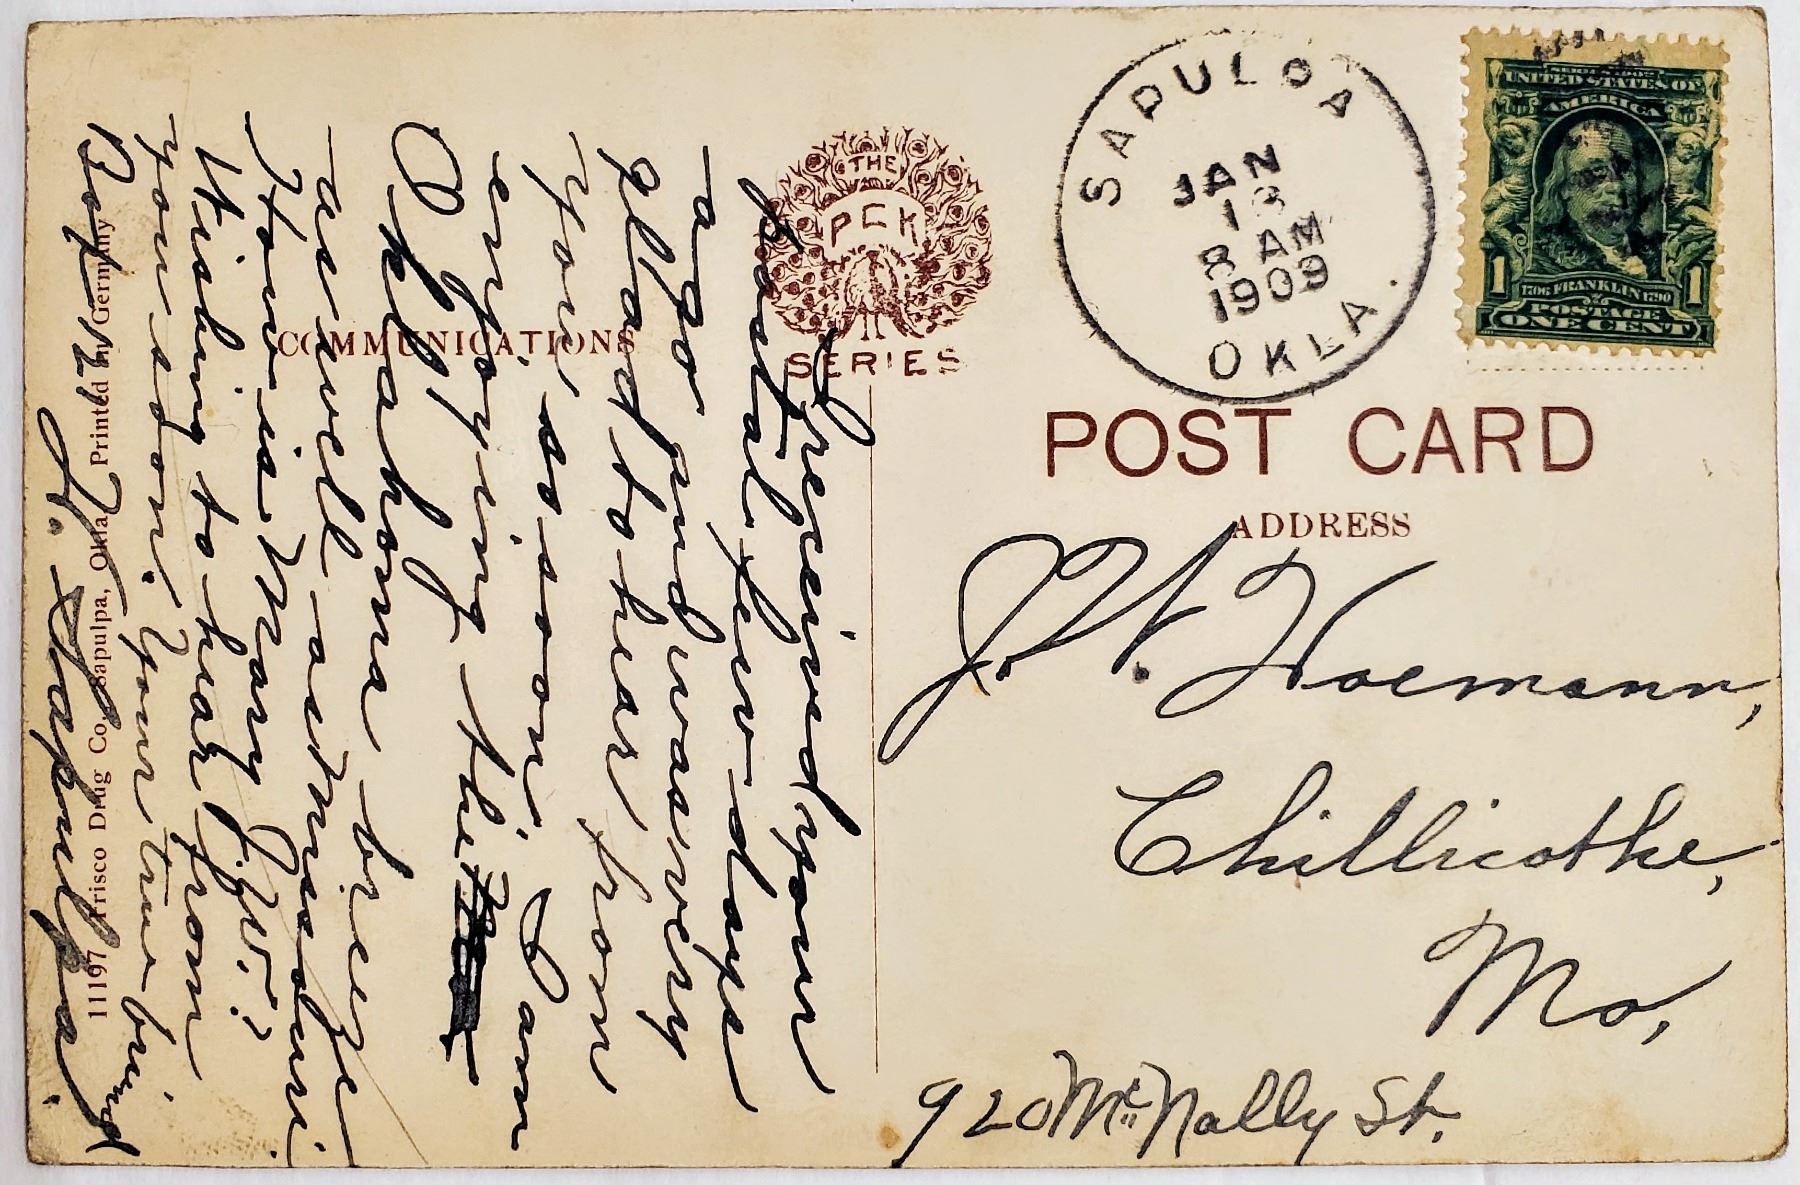 I received your
postal a few days
ago and was very
glad to hear from
you so soon. I am
enjoying the
Oklahoma breeze
as well as Missouri
How is Mary J.W.?
Wishing to hear from
you soon. Your true friend
Box 121
K. Sapulpa.
COMMUNICATIONS
11197 Frisco Drug Co. Sapulpa, Okla. Printed in Germany
THE
PCK
SERIES
SAPULPA
JAN
13
8 AM
1909
OKLA.
SERIES 1902
UNITED STATES OF
AMERICA
1 1706 FRANKLIN 1790 1
POSTAGE
ONE CENT
POST CARD
ADDRESS
J. W. Hoemann,
Chillicothe,
Mo,
920 McNally St.